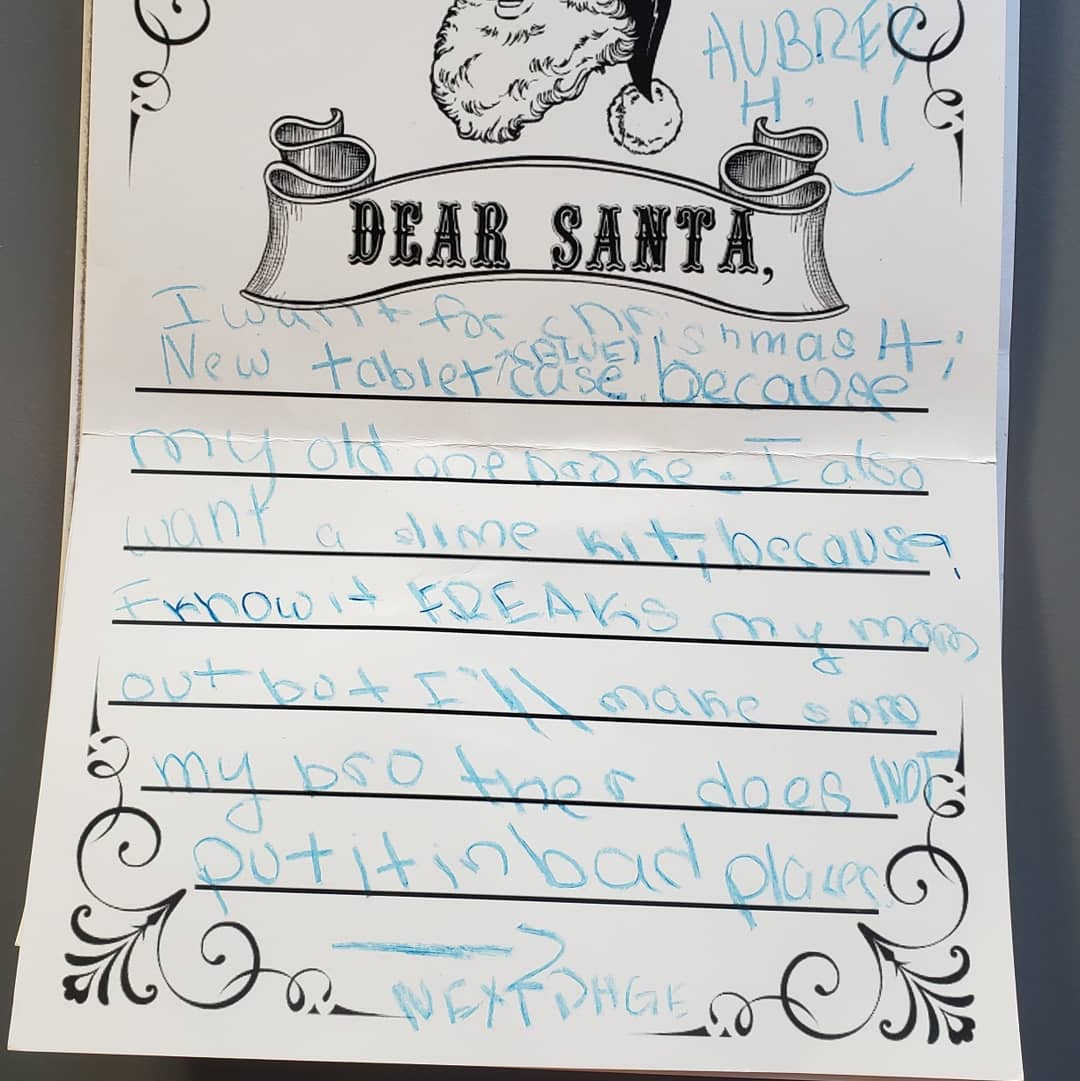 AUBREY
H. 11
DEAR SANTA,
I want for chrishmas H;
(BLUE)
New tablet case. because
my old one broke. I also
want a slime kit, because,
I know it FREAKS my mom
out but I'll make sure
my brother does NOT
put it in bad places.
NEXT PAGE